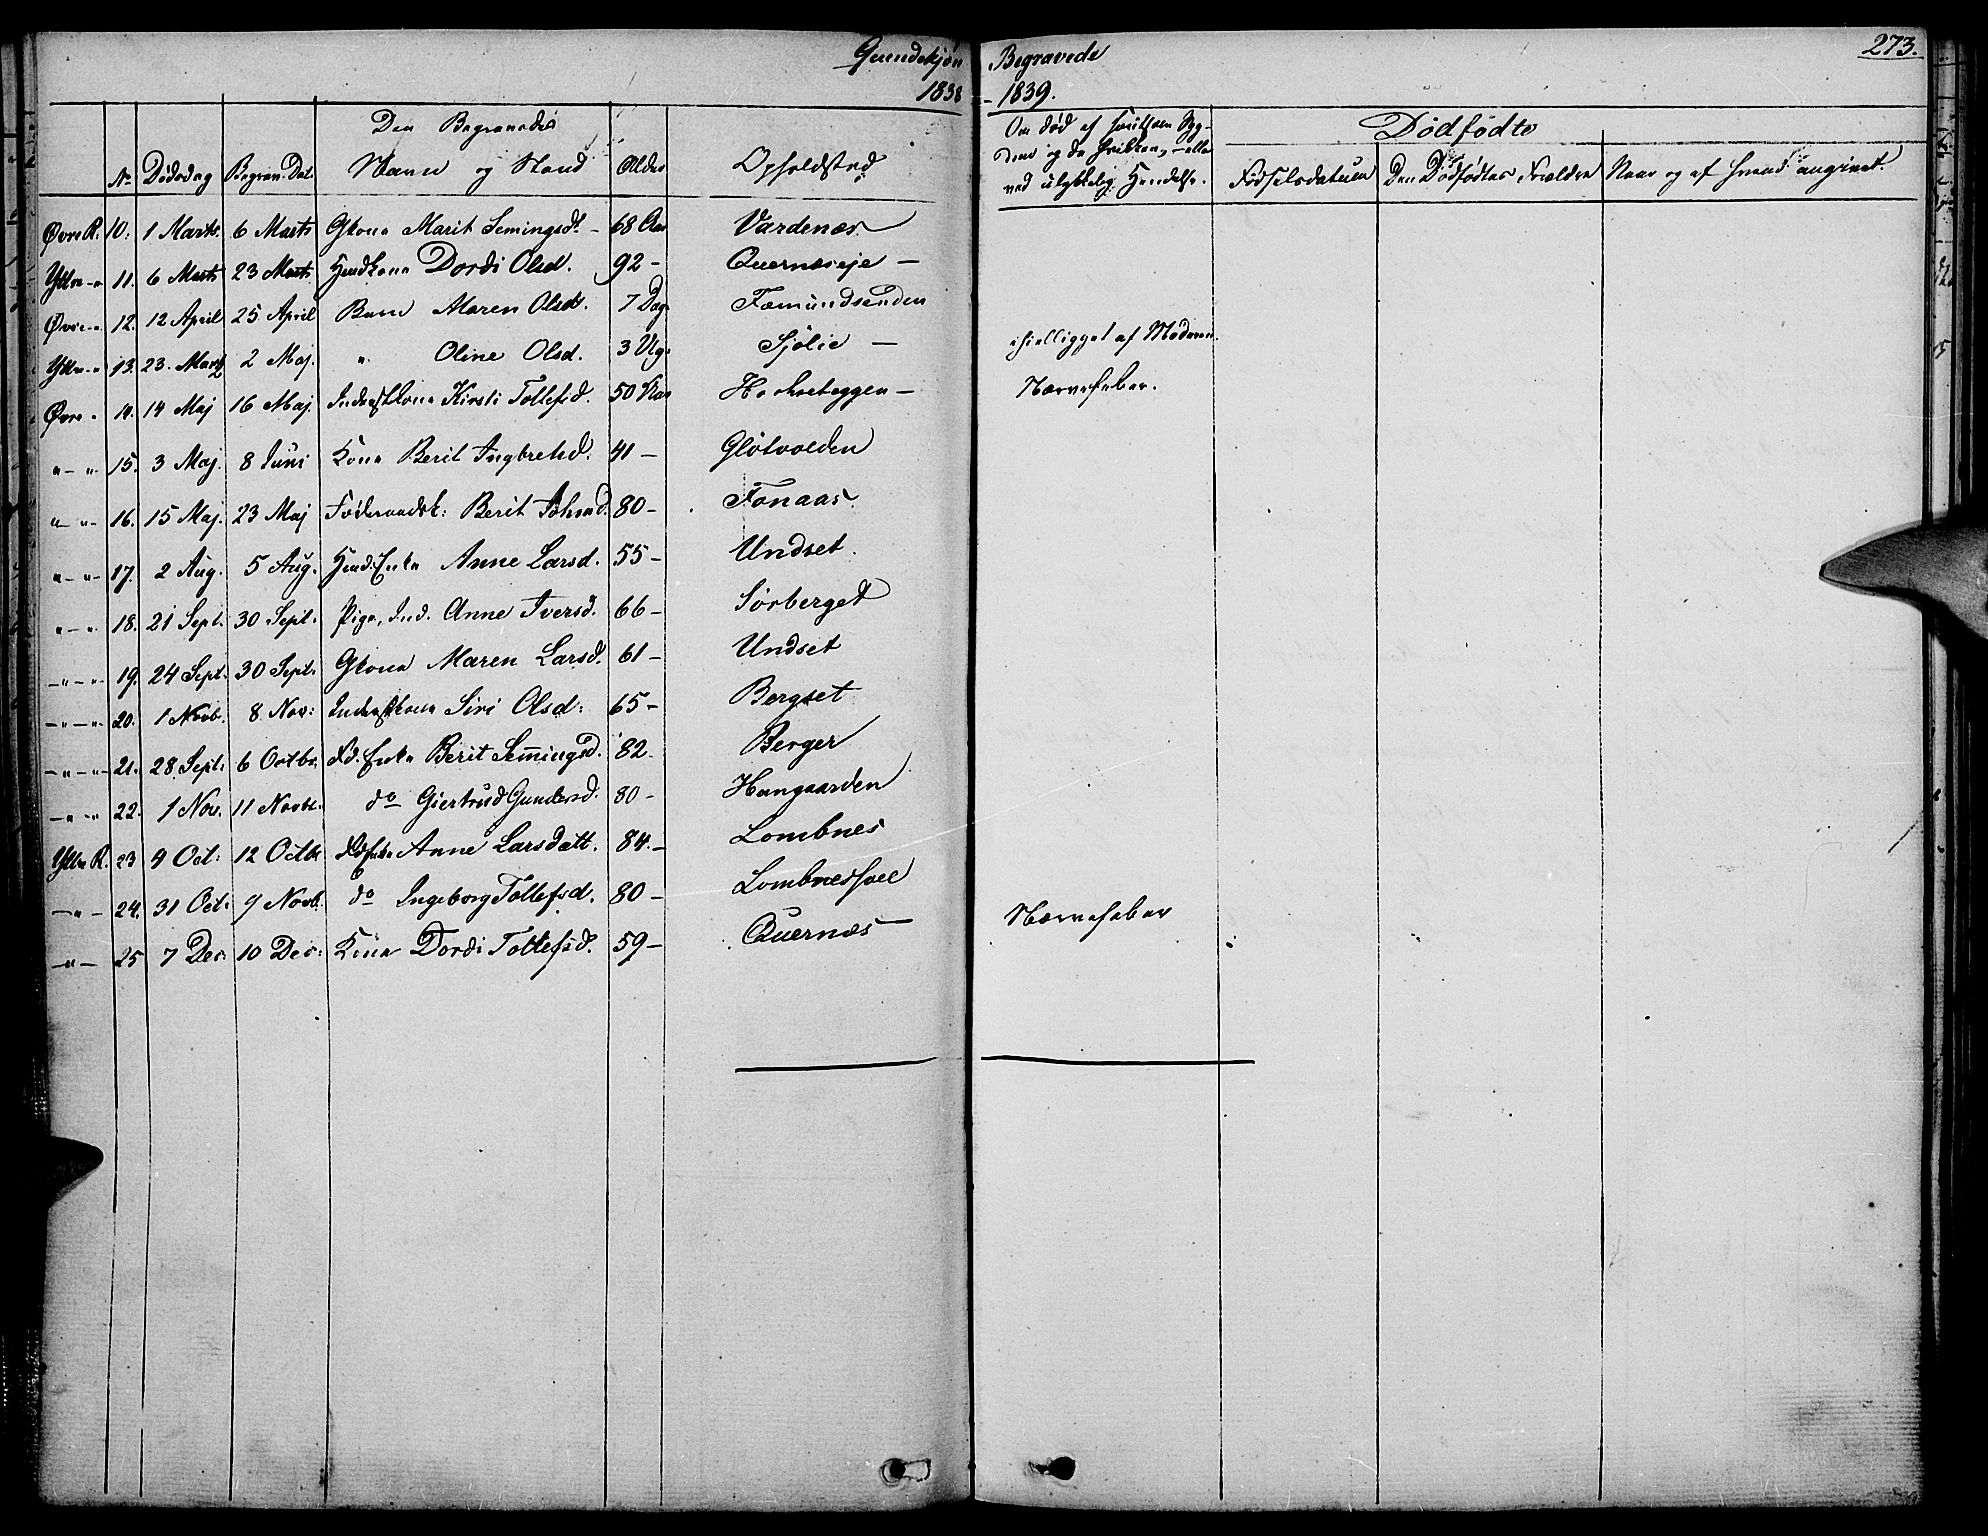 Qvindekjøn Begravede 273.
1838 - 1839.
Den Begravedes
No Dødsdag Begrav. Dat. Navn og Stand Alder Opholdsted
Om død af Syg-
dom og da hvilken, eller
ved ulykkelig Hendelse.
Dødfødte
Fødselsdatum Den Dødfødtes Forældre Naar og af hvem angivet.
Øvre R. 10. 1 Marts. 6 Marts Gkone Marit Semingsdt. - 68 Aar Vardenæs
Ytre -"- 11. 6 Marts 23 Marts Huuskone Dordi Olsd. 92 - Quernæseje -
Øvre -"- 12. 12 April 25 April Barn Maren Olsdt. 7 Dage Fæmundsenden
Ytre -"- 13. 23. Marts 2 Maj. " Oline Olsd. 3 Ug. Sjølie - ihielligget af Moderen.
Øvre -"- 14. 14 Maj 16 Maj. Inderstkone Kirsti Tollefsd. 50 Aar - Nærvefeber.
"-" 15. 3 Maj. 8 Juni Kone Berit Ingbretsd. 41 - Gløtvolden
"-"- 16. 15 Maj. 23 Maj Føderaadsk: Berit Johnsd. 80 - Fonaas.
"-"- 17. 2 Aug. 5 Aug. Huus:Enke Anne Larsd. 55 - Undset.
"-"- 18. 21 Sept. 30 Sept. Pige, Ind. Anne Iversd. 66 - Sørberget
-"-"- 19. 24 Sept. 30 Sept. Gkone Maren Larsd. 61 - Undset
-"-"- 20. 1 Novb. 8 Nov: Inderstkone Siri Olsd: 65 - Bergset
-"-"- 21. 28 Sept: 6 Octbr. Fd. Enke Berit Semingsd. 82 Berger
-"-"- 22. 1 Nov. 11 Novbr. do Giertrud Gundersd. 80 - Haugaarden
Ytre R. 23 4 Oct: 12 Octbr Fdenke Anne Larsdatt. 84. - Lombnes
-"- 24. 31 Oct: 9 Novb. do Ingeborg Tollefsd. 80 -
-"- 25 7 Dec: 10 Dec: Kone Dordi Tollefsd. 59 - Quernæs - Nærvefeber